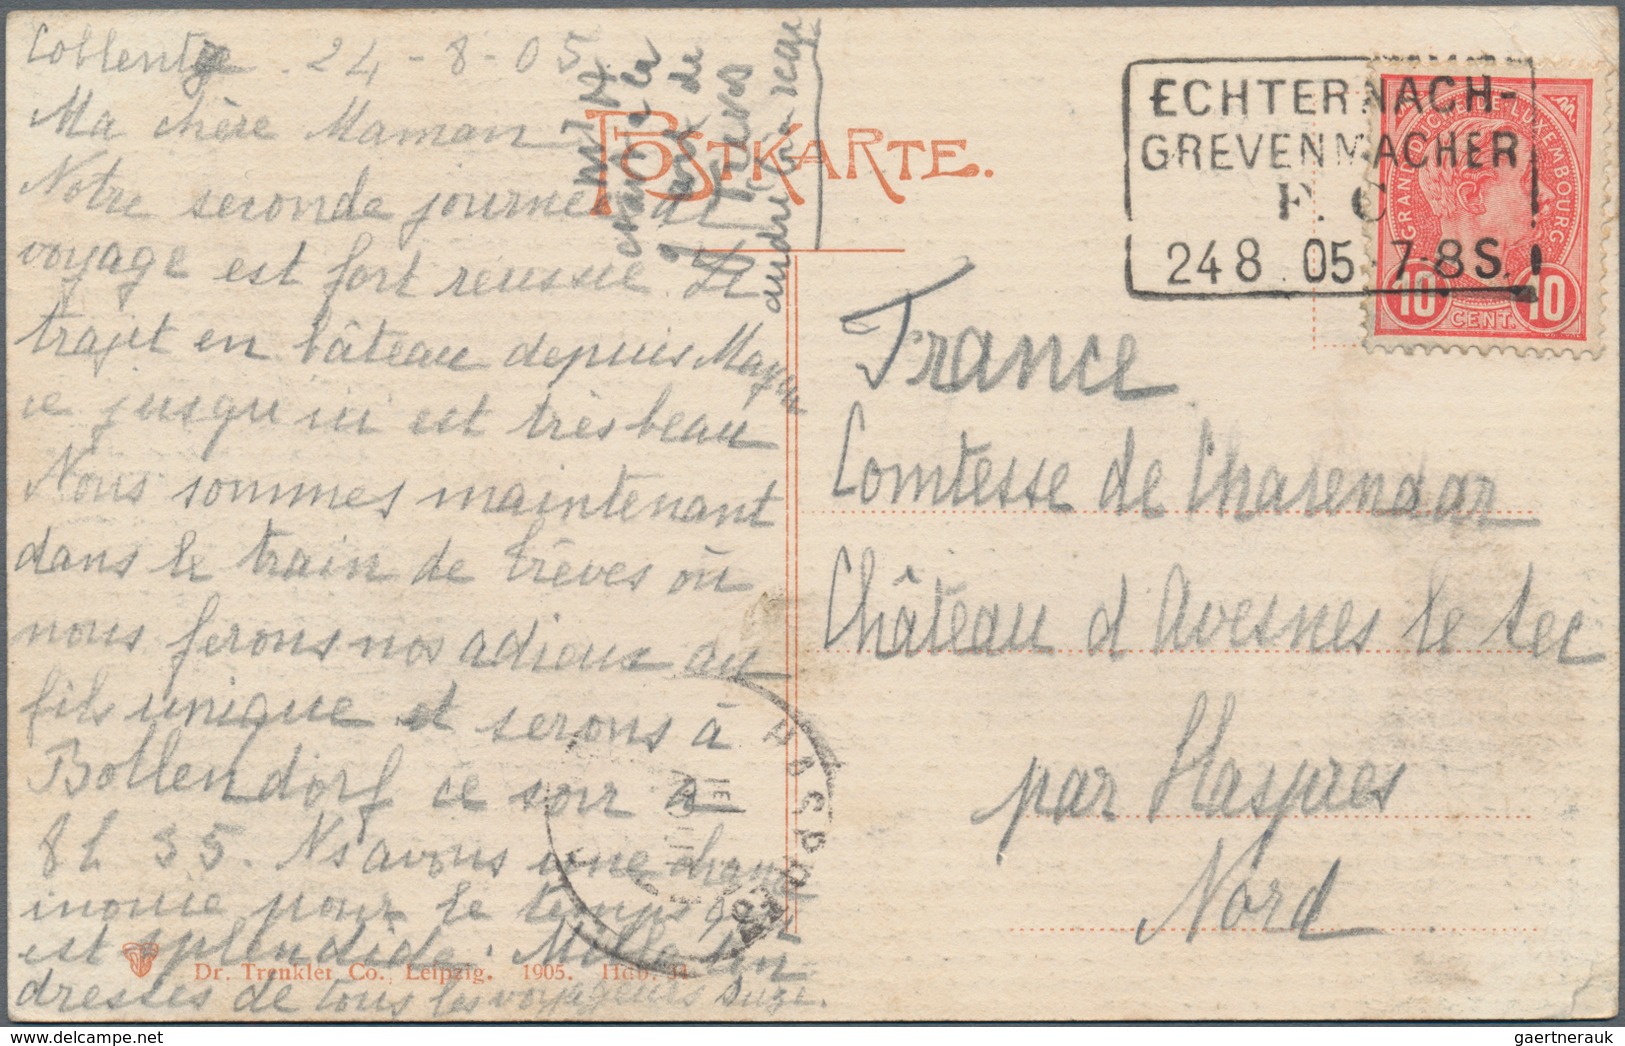 Coblentz . 24 - 8 - 05
Ma chère Maman
Notre seconde journée de
voyage est fort réussie. Le
trajet en bâteau depuis Mayen
ce jusqu'ici est très beau
Nous sommes maintenant
dans le train de Trèves où
nous ferons nos adieux au
fils unique et serons à
Bollendorf ce soir à
8h 35. Ns avons une chance
inouie pour le temps qui
est splendide. Mille ten
dresses de tous les voyageurs Suze.
POSTKARTE.
ECHTERNACH-
GREVENMACHER
F. C
248 05 7-8S.
GRAND DUCHÉ DE LUXEMBOURG
10 CENT. 10
France
Comtesse de Chasendar
Château d Avesnes le Sec
par Haspres
Nord
HASPRES
Dr. Trenkler Co., Leipzig. 1905.
gaertnerauk ©